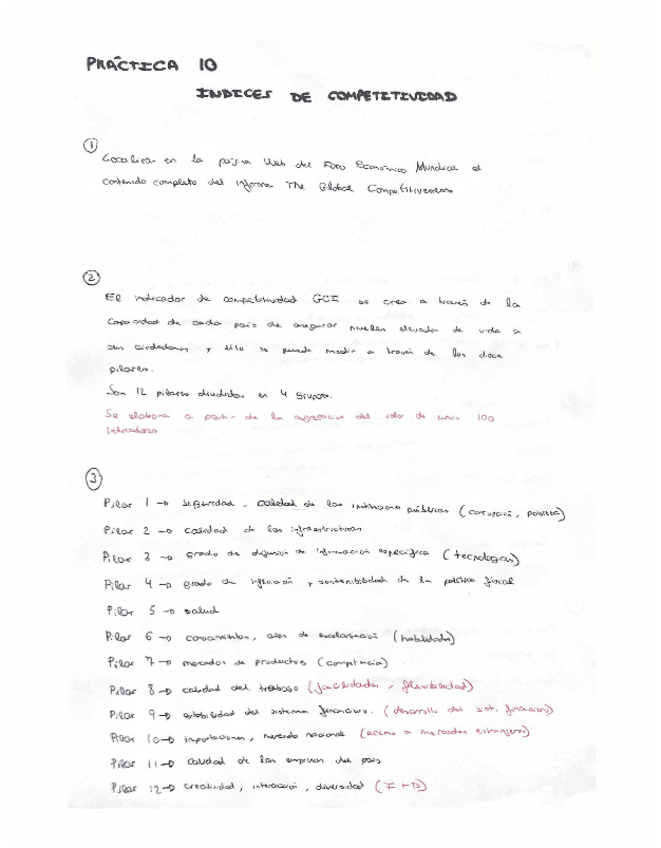 PRÁCTICA 10
INDICES DE COMPETITIVIDAD
1
Localizar en la página Web del Foro Económico Mundial el
contenido completo del informe The Global Competitiveness
2
El indicador de competitividad GCI se crea a través de la
capacidad de cada país de asegurar niveles elevados de vida a
sus ciudadanos y ello se puede medir a través de los doce
pilares.
Son 12 pilares divididos en 4 grupos.
Se elabora a partir de la agregación del valor de unos 100
indicadores
3
Pilar 1 → seguridad, calidad de las instituciones públicas (corrupción,
Pilar 2 → calidad de las infraestructuras
Pilar 3 → grado de difusión de información específica (tecnologías)
Pilar 4 → grado de inflación y sostenibilidad de la política fiscal
Pilar 5 → salud
Pilar 6 → conocimientos, años de escolarización (habilidades)
Pilar 7 → mercados de productos (competencia)
Pilar 8 → calidad del trabajo (flexibilidad)
Pilar 9 → estabilidad del sistema financiero. (desarrollo del sist. financiero)
Pilar 10 → importaciones, mercado nacional (acceso a mercados extranjeros)
Pilar 11 → calidad de las empresas del país
Pilar 12 → creatividad, interacción, diversidad (I+D)